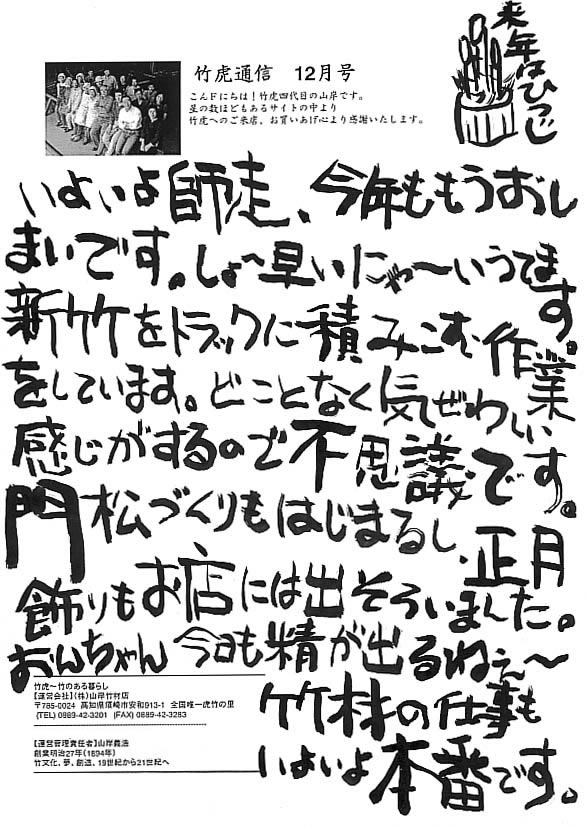 来年はひつじ
竹虎通信 12月号
こんにちは！竹虎四代目の山岸です。
星の数ほどもあるサイトの中より
竹虎へのご来店、お買いあげ心より感謝いたします。
いよいよ師走、今年ももうおし
まいです。しょ〜早いにゃ〜いうてます。
新竹をトラックに積みこむ作業
をしています。どことなく気ぜわしい
感じがするので不思議です。
門松づくりもはじまるし、正月
飾りもお店には出そろいました。
おんちゃん今日も精が出るねぇ〜
竹材の仕事も
いよいよ本番です。
竹虎〜竹のある暮らし
【運営会社】（株）山岸竹材店
〒785-0024 高知県須崎市安和913-1 全国唯一虎竹の里
(TEL) 0889-42-3201 (FAX) 0889-42-3283
【運営管理責任者】山岸義浩
創業明治27年（1894年）
竹文化、夢、創造、19世紀から21世紀へ